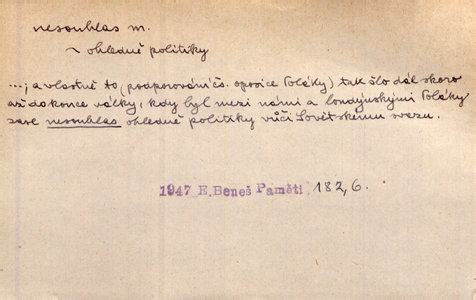 nesouhlas m.
~ ohledně politiky
...; a vlastně to (podporování čs. oposice Poláky) tak šlo dál skoro
až do konce války, kdy byl mezi námi a londýnskými Poláky
zase nesouhlas ohledně politiky vůči Sovětskému svazu.
1947 E. Beneš Paměti 182,6.